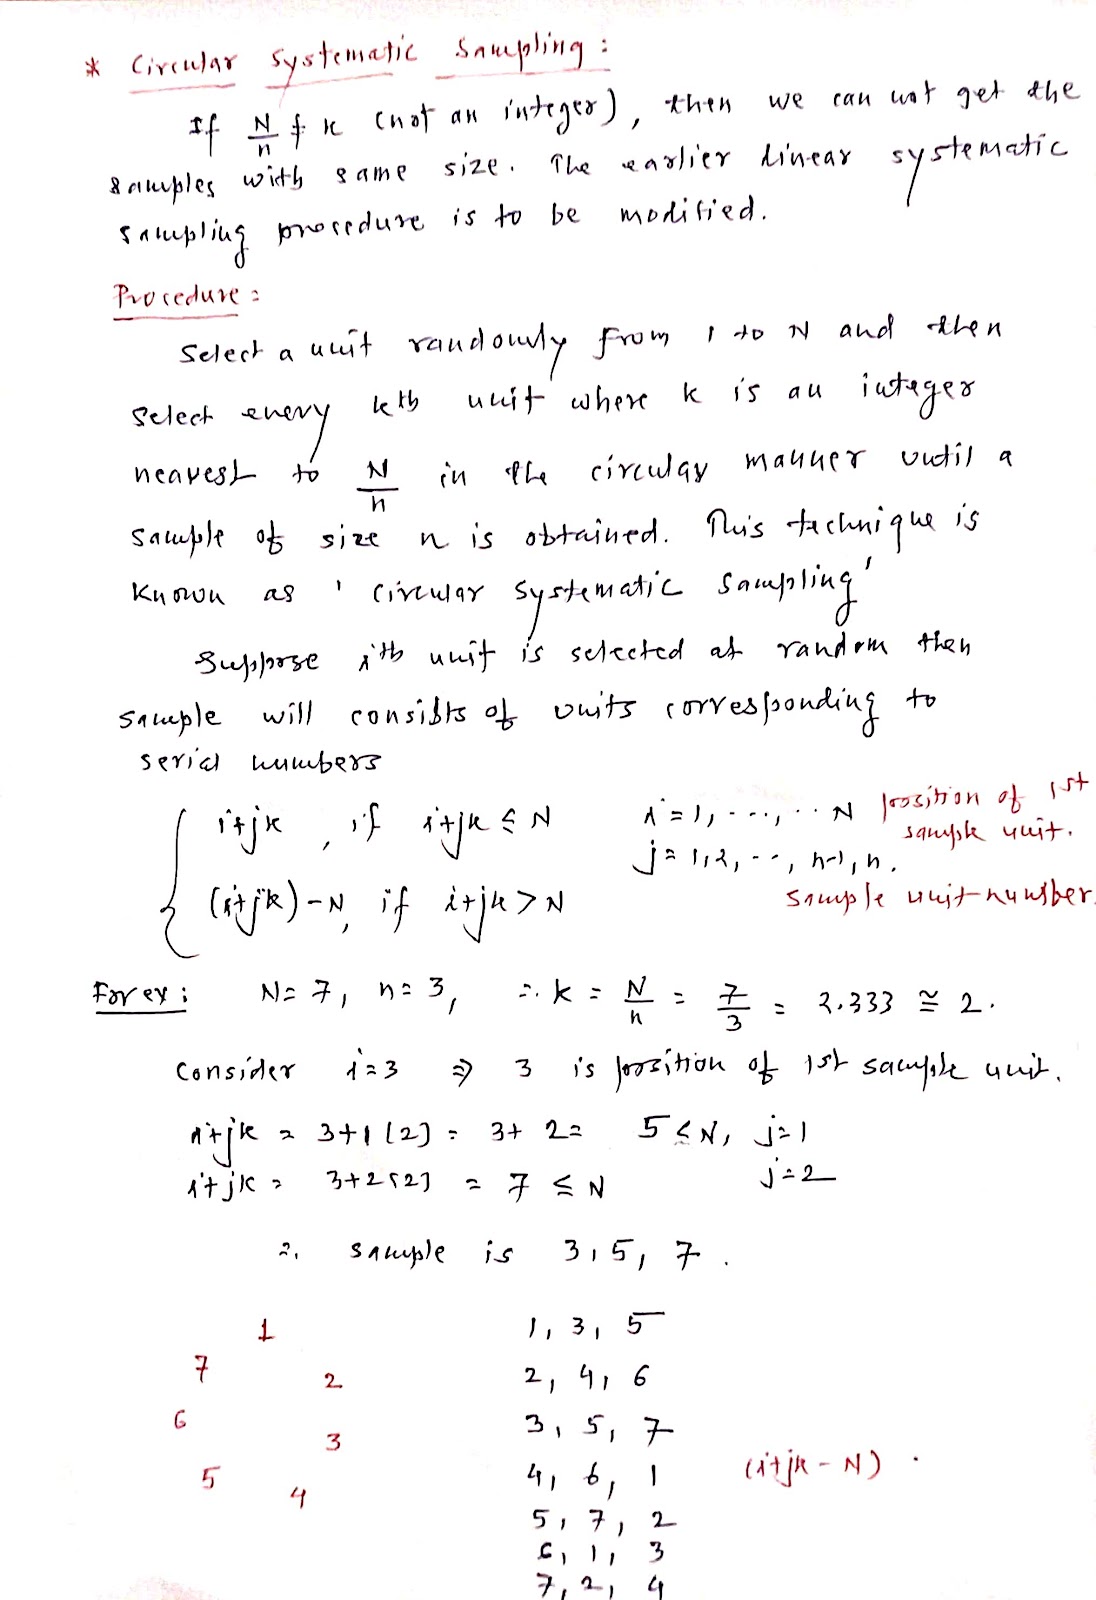 * Circular Systematic Sampling :
If N/n ≠ k (not an integer), then we can not get the
samples with same size. The earlier linear systematic
sampling procedure is to be modified.
Procedure :
Select a unit randomly from 1 to N and then
select every kth unit where k is an integer
nearest to N/n in the circular manner until a
sample of size n is obtained. This technique is
known as ' circular systematic sampling'
Suppose ith unit is selected at random then
sample will consists of units corresponding to
serial numbers
{ i+jk , if i+jk ≤ N i = 1, ..., .. N position of 1st sample unit.
(i+jk) - N, if i+jk > N j = 1, 2, --, n-1, n. sample unit number.
For ex : N = 7, n = 3, ∴ k = N/n = 7/3 = 2.333 ≅ 2.
Consider i = 3 ⇒ 3 is position of 1st sample unit.
i+jk = 3+1(2) = 3+2 = 5 < N, j=1
i+jk = 3+2(2) = 7 ≤ N j=2
∴ sample is 3, 5, 7.
1 1, 3, 5
7 2 2, 4, 6
6 3 3, 5, 7
5 4 4, 6, 1 (i+jk - N) .
5, 7, 2
6, 1, 3
7, 2, 4